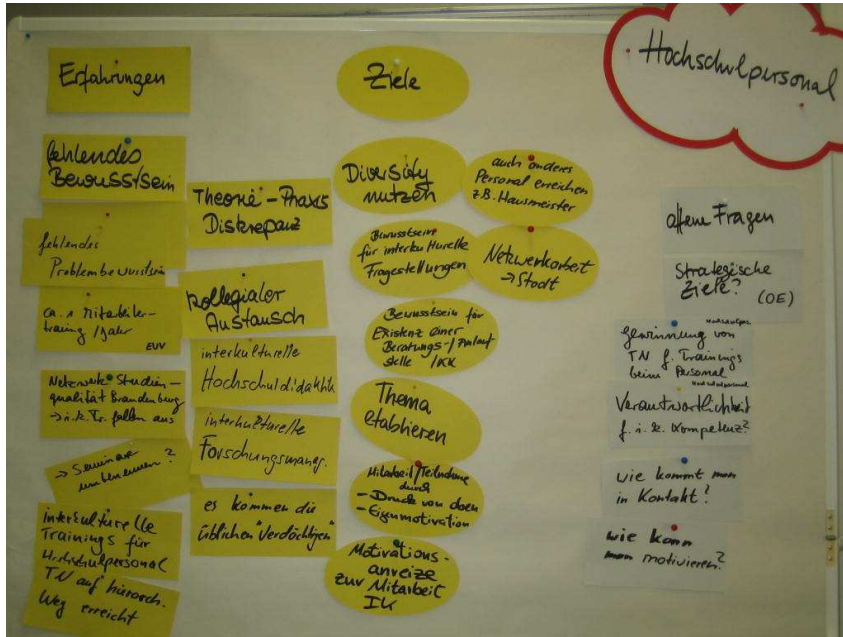 Hochschulpersonal
Erfahrungen
fehlendes
Bewusstsein
fehlendes
Problembewusstsein
ca. 1 Mitarbeiter-
training / Jahr
EUV
Netzwerk Studien-
qualität Brandenburg
→ i.k. Tr. fallen aus
→ Seminare
umbenennen?
interkulturelle
Trainings für
Hochschulpersonal
TN auf hierarch.
Weg erreicht
Theorie - Praxis
Diskrepanz
kollegialer
Austausch
interkulturelle
Hochschuldidaktik
interkulturelle
Forschungsmanag.
es kommen die
üblichen "Verdächtigen"
Ziele
Diversity
nutzen
Bewusstsein
für interkulturelle
Fragestellungen
Bewusstsein für
Existenz einer
Beratungs-/Anlauf
stelle / IKK
Thema
etablieren
Mitarbeit/Teilnahme
durch
- Druck von oben
- Eigenmotivation
Motivations-
anreize
zur Mitarbeit
IK
auch anderes
Personal erreichen
z.B. Hausmeister
Netzwerkarbeit
→ Stadt
offene Fragen
Strategische
Ziele?
(OE)
Gewinnung von
TN f. Trainings
beim Personal
Hochschulpersonal
Verantwortlichkeit
f. i.k. Kompetenz?
wie kommt man
in Kontakt?
wie kann
man motivieren?